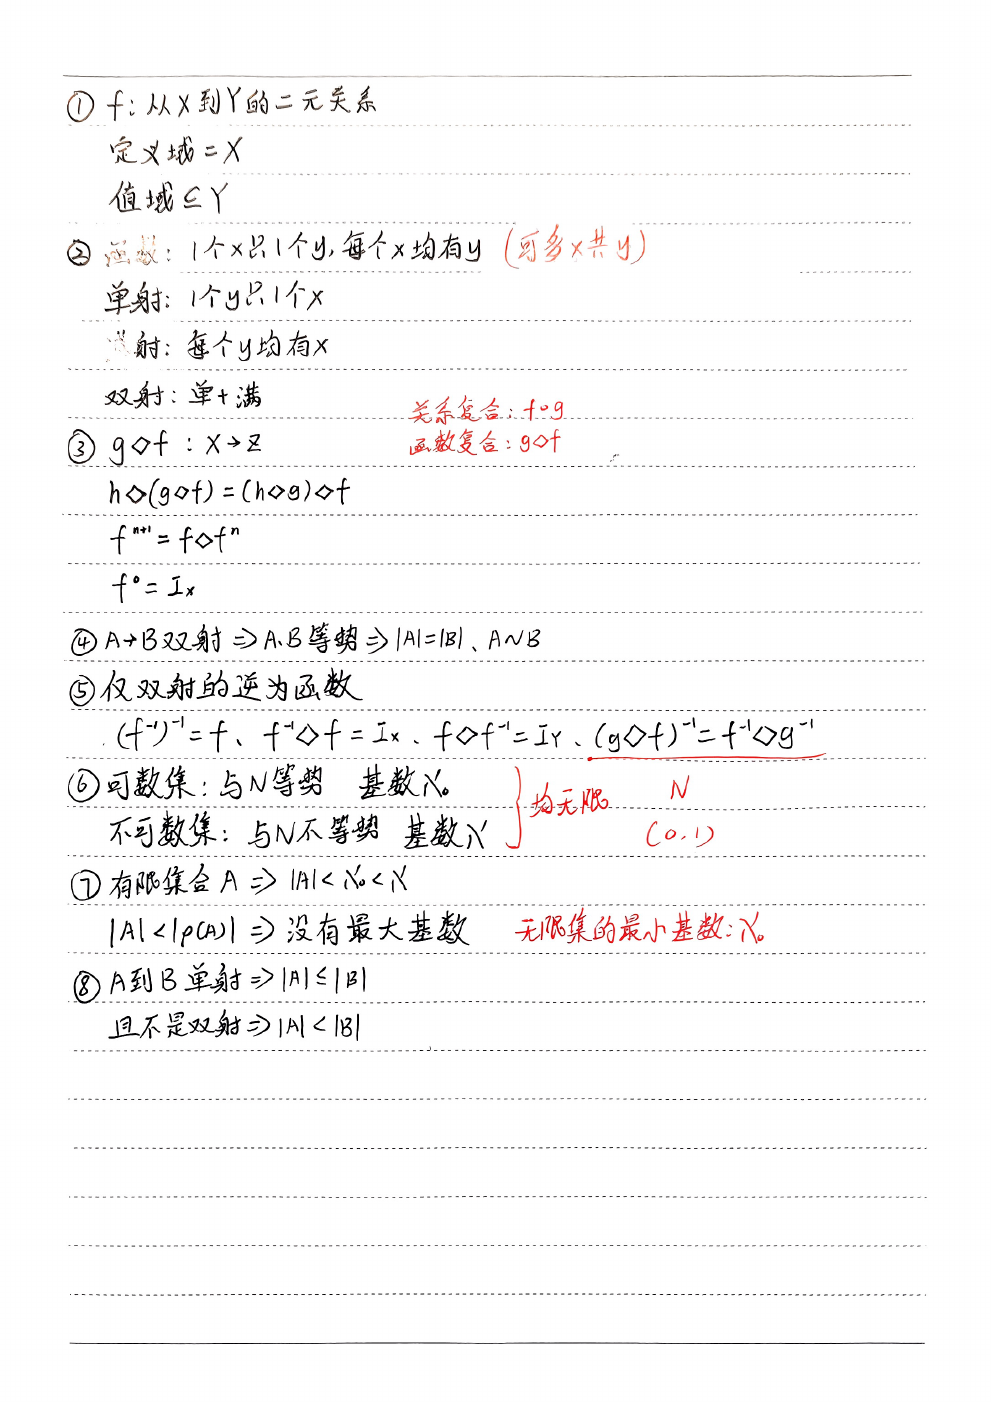 ① f：从X到Y的二元关系
定义域=X
值域⊆Y
② 函数：1个x只1个y,每个x均有y (可多x共y)
单射：1个y只1个x
满射：每个y均有x
双射：单+满
关系复合：f∘g
③ g◇f：X→Z 函数复合：g◇f
h◇(g◇f)=(h◇g)◇f
fⁿ⁺¹=f◇fⁿ
f⁰=Iₓ
④ A→B双射⇒A、B等势⇒|A|=|B|、A~B
⑤ 仅双射的逆为函数
(f⁻¹)⁻¹=f、f⁻¹◇f=Iₓ、f◇f⁻¹=IY、(g◇f)⁻¹=f⁻¹◇g⁻¹
⑥ 可数集：与N等势 基数ℵ₀ }均无限 N
不可数集：与N不等势 基数ℵ (0,1)
⑦ 有限集合A⇒|A|<ℵ₀<ℵ
|A|<|ρ(A)|⇒没有最大基数 无限集的最小基数：ℵ₀
⑧ A到B单射⇒|A|≤|B|
且不是双射⇒|A|<|B|